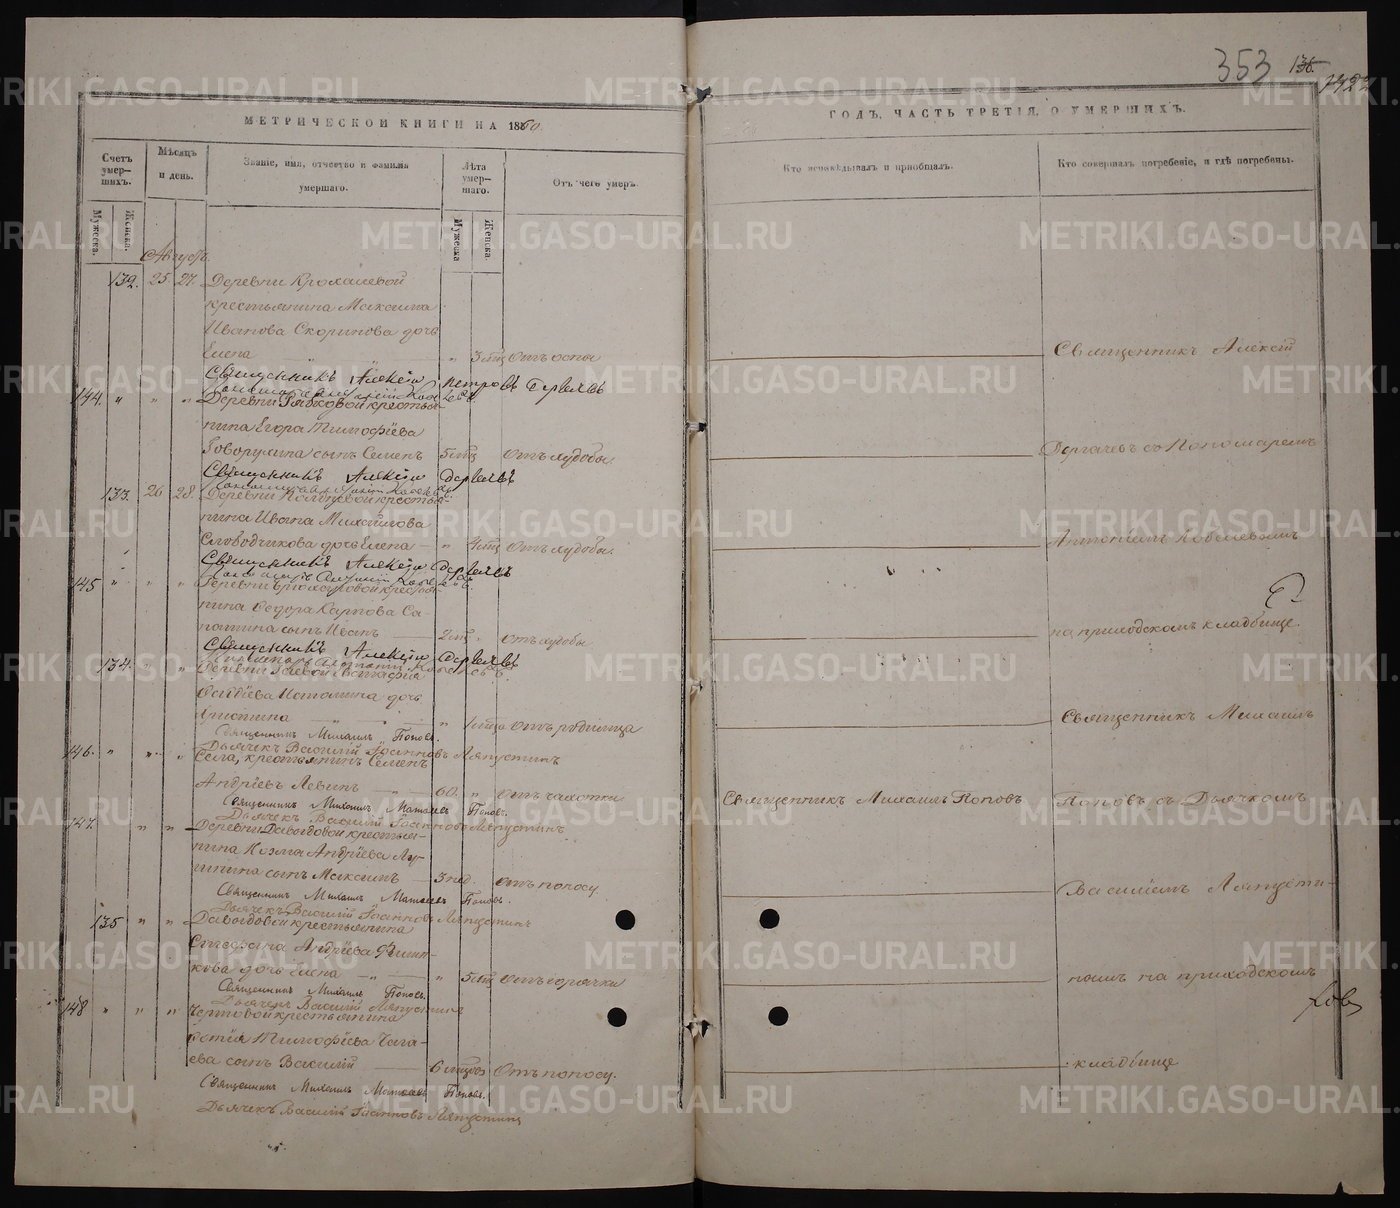 353
136.
МЕТРИЧЕСКОЙ КНИГИ НА 1860.
ГОДЪ, ЧАСТЬ ТРЕТІЯ, О УМЕРШИХЪ.
Счетъ умер-шихъ.
Мѣсяцъ и день.
Званіе, имя, отчество и фамилія умершаго.
Лѣта умер-шаго.
Отъ чего умеръ.
Кто исповѣдывалъ и пріобщалъ.
Кто совершалъ погребеніе, и гдѣ погребены.
Мужеска.
Женска.
Мужеска
Женска.
Августъ.
132. 25. 27. Деревни Крохалевой
крестьянина Максима
Иванова Скорынова дочь
Елена " 3 мца Отъ оспы
Священникъ Алексій
Священникъ Алексій Петровъ Дергачевъ
144. " " " Деревни крестья-
нина Егора Тимофѣева
Говорухина сынъ Семенъ 5 мц Отъ худобы.
Дергачевъ со Пономаремъ
Священникъ Алексій Дергачевъ
133. 26 28. Деревни крестья-
нина Ивана Михайлова
Слободчикова дочь Елена " 4 мц Отъ худобы.
Антоніемъ Кобелевымъ
Священникъ Алексій Дергачевъ
145 " " " Деревни крестья-
нина Ѳедора Карпова Са-
сынъ Иванъ 2 мц " Отъ худобы
на приходскомъ кладбищѣ.
Священникъ Алексій Дергачевъ
134. " " Деревни Евстафія
Истомина дочь
Христина " 1 мца Отъ родимца
Священникъ Михаилъ
Священникъ Михаилъ Поповъ.
Дьячекъ Василій Іоанновъ Ляпустинъ
146. " " " Села, крестьянинъ Семенъ
Андрѣевъ Левинъ 60. " Отъ чахотки
Священникъ Михаилъ Поповъ
Поповъ съ Дьячкомъ
Священникъ Михаилъ Матвѣевъ Поповъ.
Дьячекъ Василій Іоанновъ Ляпустинъ
147. " " Деревни Давыдовой крестья-
нина Козма Андрѣева Лу-
сынъ Максимъ 3 нед. Отъ поносу
Василіемъ Ляпусти-
Священникъ Михаилъ Матвѣевъ Поповъ.
Дьячекъ Василій Іоанновъ Ляпустинъ
135 " " Давыдовой крестьянина
Стефана Андрѣева
кова дочь Елена " 5 мц Отъ горячки
номъ на приходскомъ
Священникъ Михаилъ Поповъ.
Дьячекъ Василій Ляпустинъ
148 " " " Чертовой крестьянина
Тимофѣева Чага-
ева сынъ Василій 6 мцовъ Отъ поносу.
кладбищѣ
Священникъ Михаилъ Матвѣевъ Поповъ.
Дьячекъ Василій Іоанновъ Ляпустинъ
METRIKI.GASO-URAL.RU